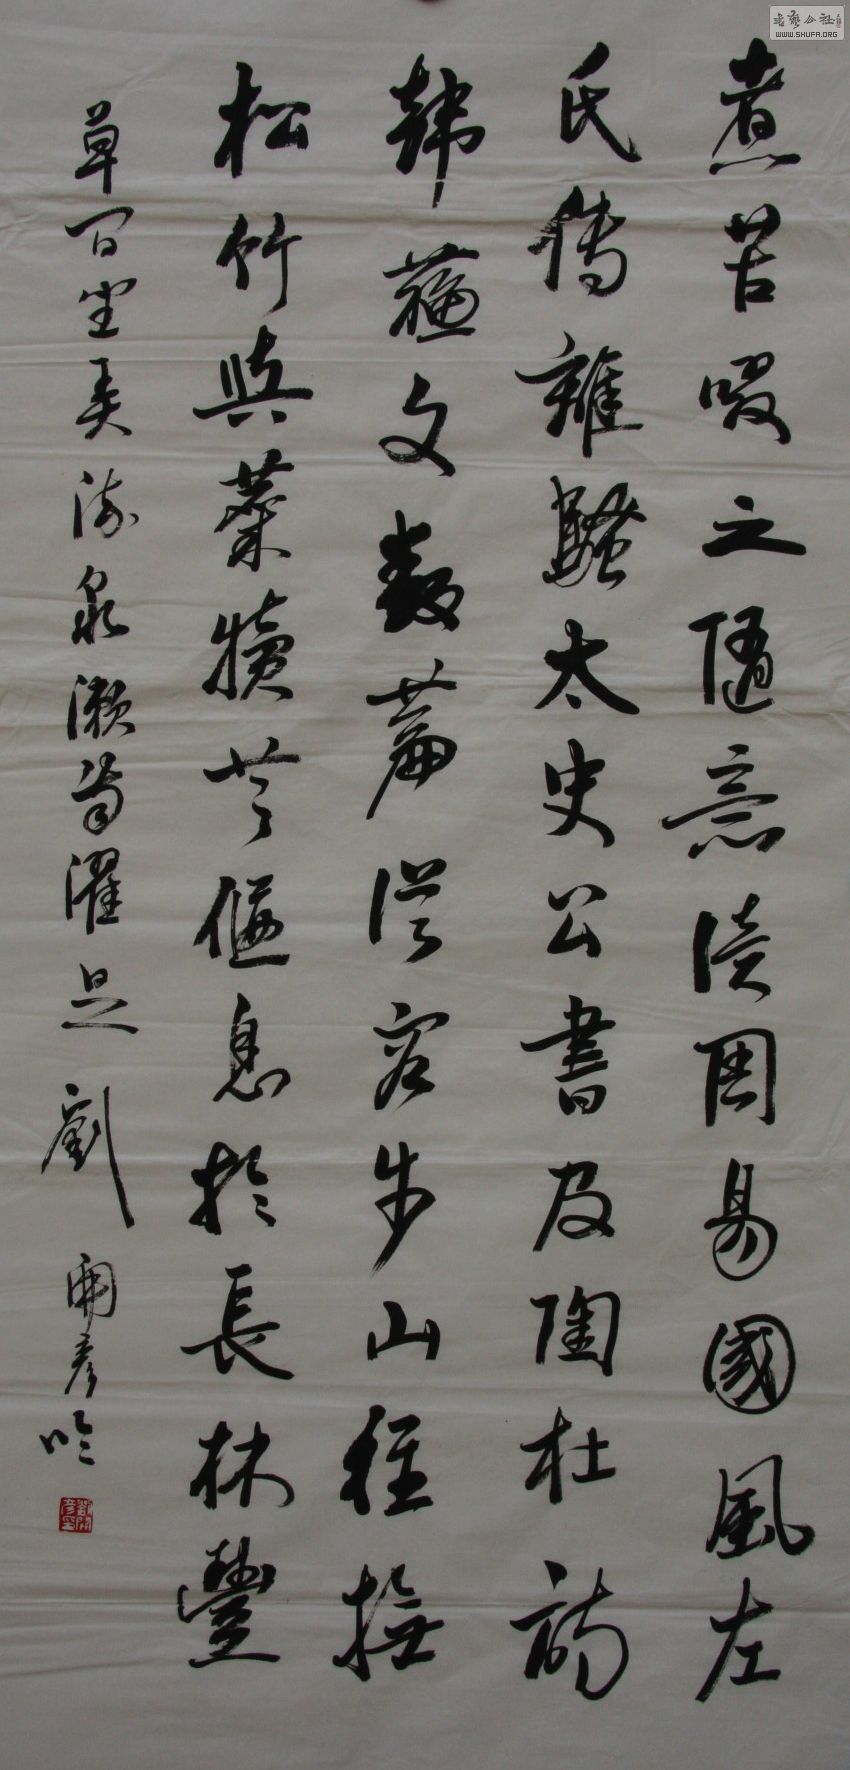 煮苦啜之隨意讀周易國風左
氏傳離騷太史公書及陶杜詩
韓蘇文數篇從容步山徑撫
松竹與麋犢共偃息於長林豐
草間坐弄流泉漱齒濯足 劉開彥
書藝公社
WWW.SHUFA.ORG